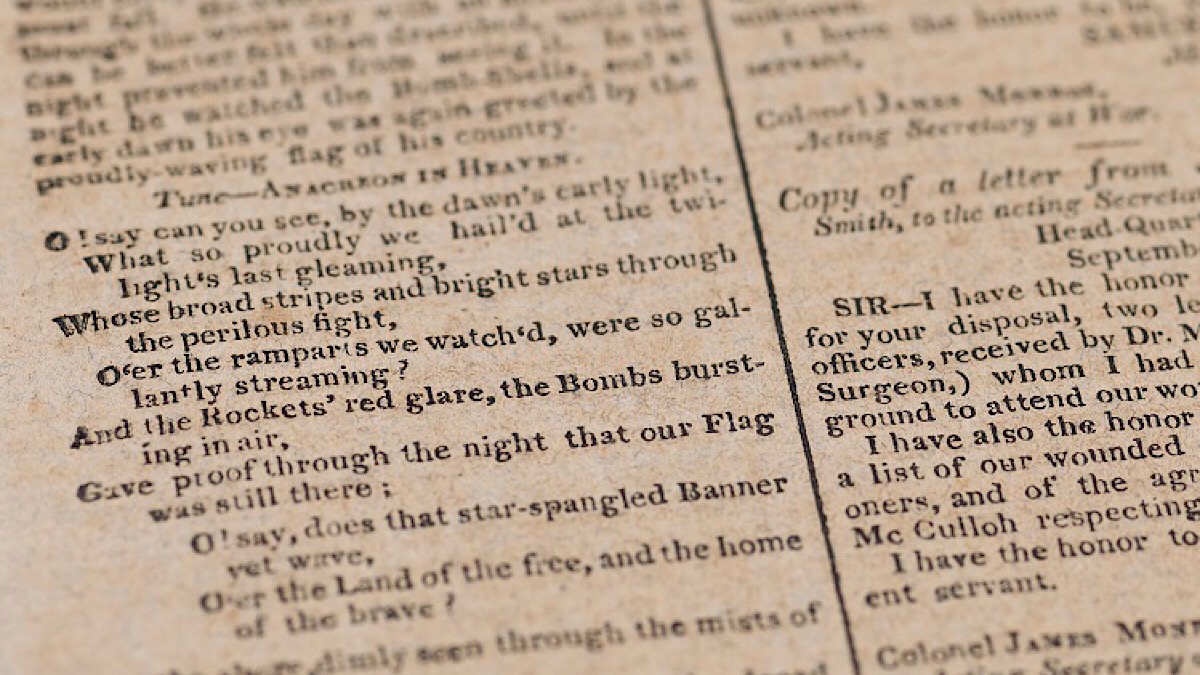 through the whole day with
can be better felt than described, until the
night prevented him from seeing it. In the
night he watched the Bomb-Shells, and at
early dawn his eye was again greeted by the
proudly-waving flag of his country.
Tune—ANACREON IN HEAVEN.
O! say can you see, by the dawn's early light,
What so proudly we hail'd at the twi-
light's last gleaming,
Whose broad stripes and bright stars through
the perilous fight,
O'er the ramparts we watch'd, were so gal-
lantly streaming?
And the Rockets' red glare, the Bombs burst-
ing in air,
Gave proof through the night that our Flag
was still there;
O! say, does that star-spangled Banner
yet wave,
O'er the Land of the free, and the home
of the brave?
dimly seen through the mists of
unknown.
I have the honor to be,
servant,
Colonel JAMES MONROE,
Acting Secretary at War.
Copy of a letter from
Smith, to the acting Secreta
Head-Quar
Septemb
SIR—I have the honor
for your disposal, two le
officers, received by Dr. M
Surgeon,) whom I had
ground to attend our wo
I have also the honor
a list of our wounded
oners, and of the agr
Mc Culloh respecting
I have the honor to
ent servant.
Colonel JAMES MON
Acting Secretary